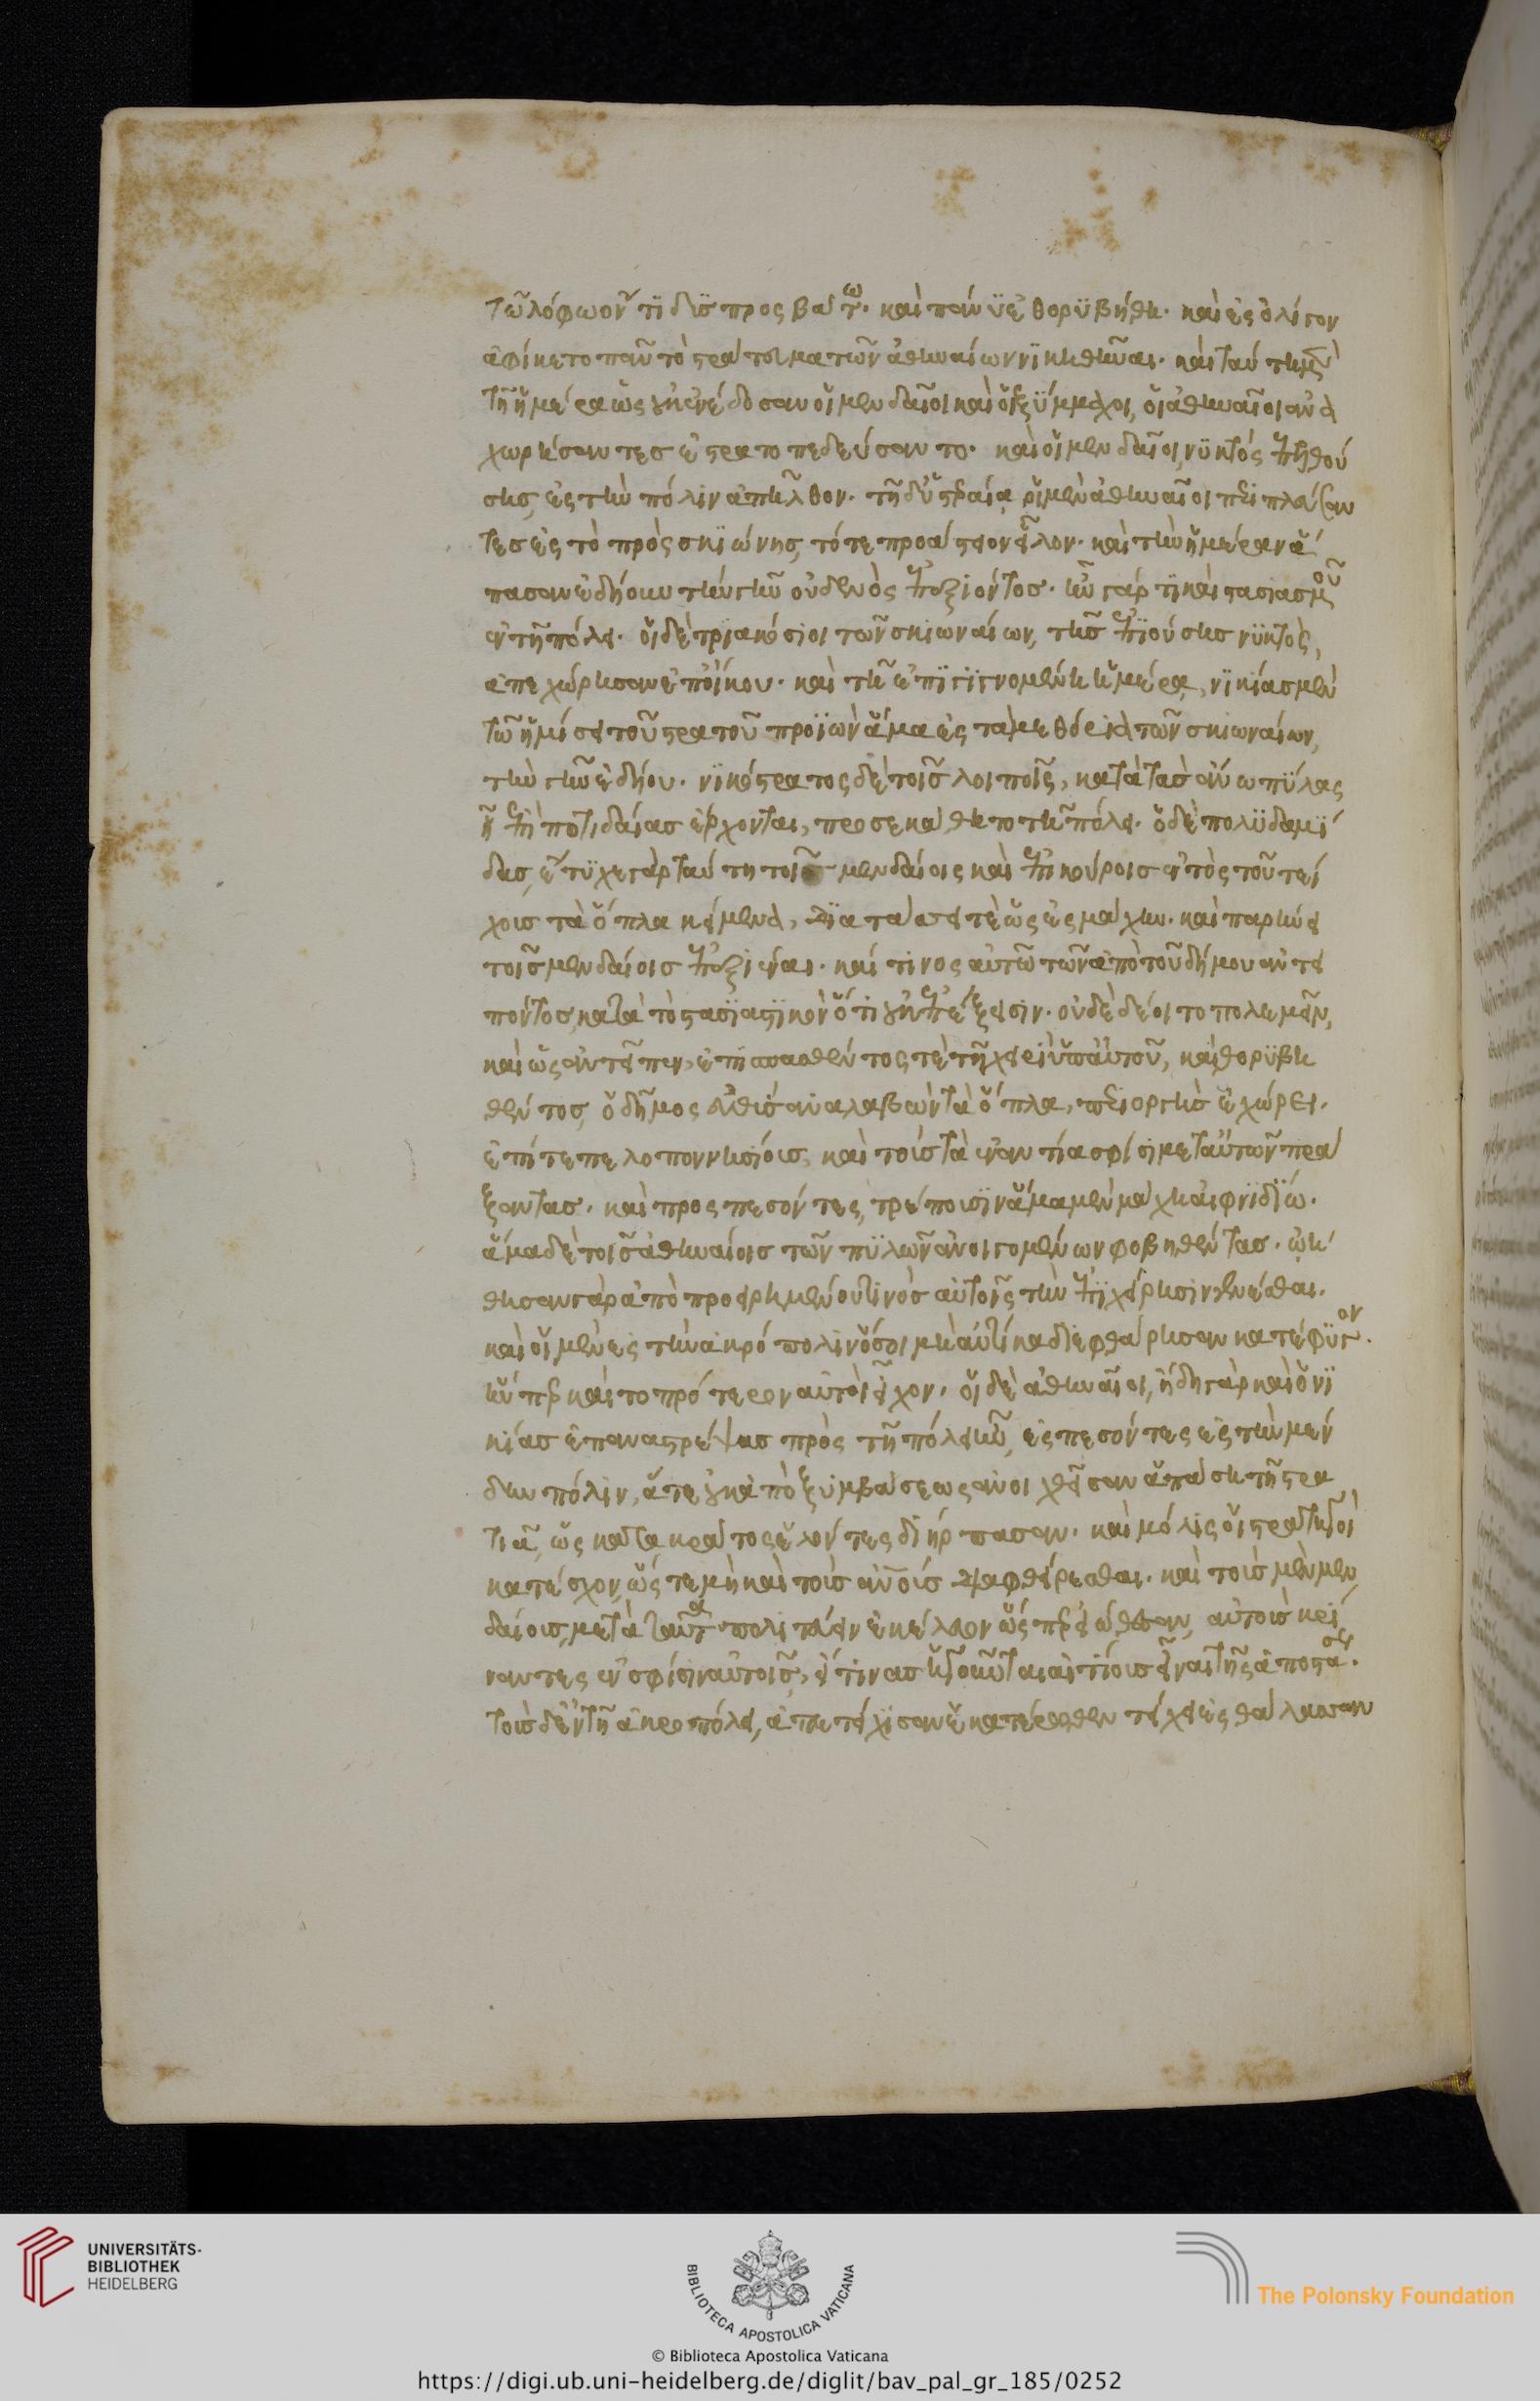 τῶ λόφω ὄντι δυσπροσβάτω. καὶ πάνυ ἐθορυβήθη. καὶ ἐς ὀλίγον
ἀφίκετο πᾶν τὸ στράτευμα τῶν ἀθηναίων νικηθῆναι. καὶ ταύτη μὲν
τῆ ἡμέρα ὡς οὐκ ἐνέδοσαν οἱ μενδαῖοι καὶ οἱ ξύμμαχοι, οἱ ἀθηναῖοι ἀνα
χωρήσαντες ἐστρατοπεδεύσαντο. καὶ οἱ μενδαῖοι, νυκτὸς ἐπελθού
σης, ἐς τὴν πόλιν ἀπῆλθον. τῆ δ' ὑστεραία οἱ μὲν ἀθηναῖοι περιπλεύσαν
τες ἐς τὸ πρὸς σκιώνης, τό τε προάστειον εἷλον. καὶ τὴν ἡμέραν ἅ
πασαν ἐδήουν τὴν γῆν οὐδενὸς ἐπεξιόντος. ἦν γάρ τι καὶ στασιασμοῦ
ἐν τῆ πόλει. οἱ δὲ τριακόσιοι τῶν σκιωναίων, τῆς ἐπιούσης νυκτὸς,
ἀπεχώρησαν ἐπ' οἴκου. καὶ τῆ ἐπιγιγνομένη ἡμέρα, νικίας μὲν
τῶ ἡμίσει τοῦ στρατοῦ προϊὼν ἅμα ἐς τὰ μεθόρια τῶν σκιωναίων,
τὴν γῆν ἐδήου. νικόστρατος δὲ τοῖς λοιποῖς, κατὰ τὰς ἄνω πύλας
ἧ ἐπὶ ποτιδαίας ἔρχονται, προσεκάθητο τῆ πόλει. ὁ δὲ πολυδαμί
δας, ἔτυχε γὰρ ταύτη τοῖς μενδαίοις καὶ ἐπικούροις ἐντὸς τοῦ τεί
χους τὰ ὅπλα κείμενα, διατάσσει τε ὡς ἐς μάχην. καὶ παρήνει
τοῖς μενδαίοις ἐπεξιέναι. καί τινος αὐτῶ τῶν ἀπὸ τοῦ δήμου ἀντει
πόντος, κατὰ τὸ στασιαστικὸν ὅτι οὐκ ἐπέξεισιν. οὐδὲ δέοιτο πολεμεῖν,
καὶ ὡς ἀντεῖπεν, ἐπισπασθέντος τε τῆ χειρὶ ὑπ' αὐτοῦ, καὶ θορυβη
θέντος, ὁ δῆμος εὐθὺς ἀναλαβὼν τὰ ὅπλα, περιοργὴς ἐχώρει.
ἐπί τε πελοποννησίους, καὶ τοὺς τὰ ἐναντία σφίσι μετ' αὐτῶν πρά
ξαντας. καὶ προσπεσόντες, τρέπουσιν ἅμα μὲν μάχη αἰφνιδίω.
ἅμα δὲ τοῖς ἀθηναίοις τῶν πυλῶν ἀνοιγομένων φοβηθέντας. ὠή
θησαν γὰρ ἀπὸ προειρημένου τινὸς αὐτοῖς τὴν ἐπιχείρησιν γενέσθαι.
καὶ οἱ μὲν ἐς τὴν ἀκρόπολιν ὅσοι μὴ αὐτίκα διεφθάρησαν κατέφυγον.
ἥνπερ καὶ τὸ πρότερον αὐτοὶ εἶχον. οἱ δὲ ἀθηναῖοι, ἤδη γὰρ καὶ ὁ νι
κίας ἐπαναστρέψας πρὸς τῆ πόλει ἦν, ἐσπεσόντες ἐς τὴν μέν
δην πόλιν, ἅτε οὐκ ἀπὸ ξυμβάσεως ἀνοιχθεῖσαν ἁπάση τῆ στρα
τιᾶ, ὡς κατὰ κράτος ἑλόντες διήρπασαν. καὶ μόλις οἱ στρατηγοὶ
κατέσχον, ὥστε μὴ καὶ τοὺς ἀνθρώπους διαφθείρεσθαι. καὶ τοὺς μὲν μεν
δαίους, μετὰ ταῦτα πολιτεύειν ἐκέλευον ὥσπερ εἰώθεσαν, αὐτοὺς κρί
ναντες ἐν σφίσιν αὐτοῖς, εἴ τινας ἡγοῦνται αἰτίους εἶναι τῆς ἀποστάσεως.
τοὺς δ' ἐν τῆ ἀκροπόλει, ἀπετείχισαν ἑκατέρωθεν τείχει ἐς θάλασσαν
UNIVERSITÄTS-
BIBLIOTHEK
HEIDELBERG
BIBLIOTECA APOSTOLICA VATICANA
The Polonsky Foundation
© Biblioteca Apostolica Vaticana
https://digi.ub.uni-heidelberg.de/diglit/bav_pal_gr_185/0252